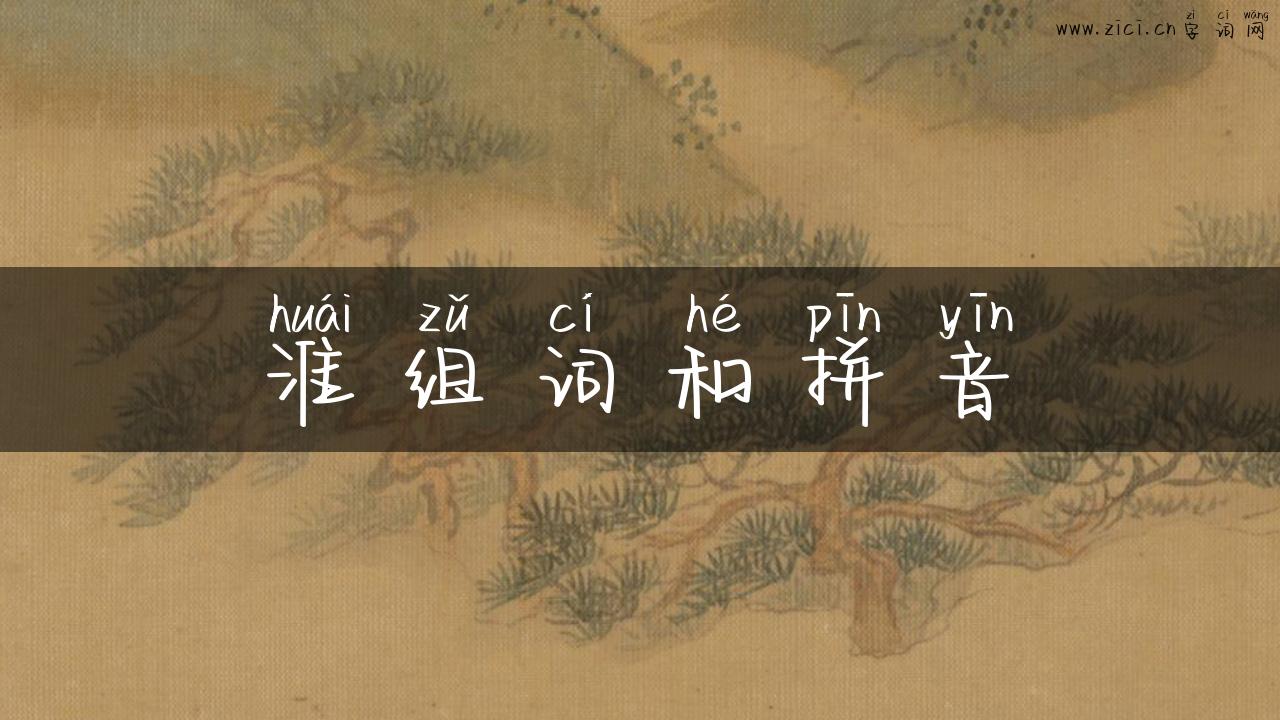 zì cí wǎng
www.zici.cn 字词网
huái zǔ cí hé pīn yīn
淮组词和拼音